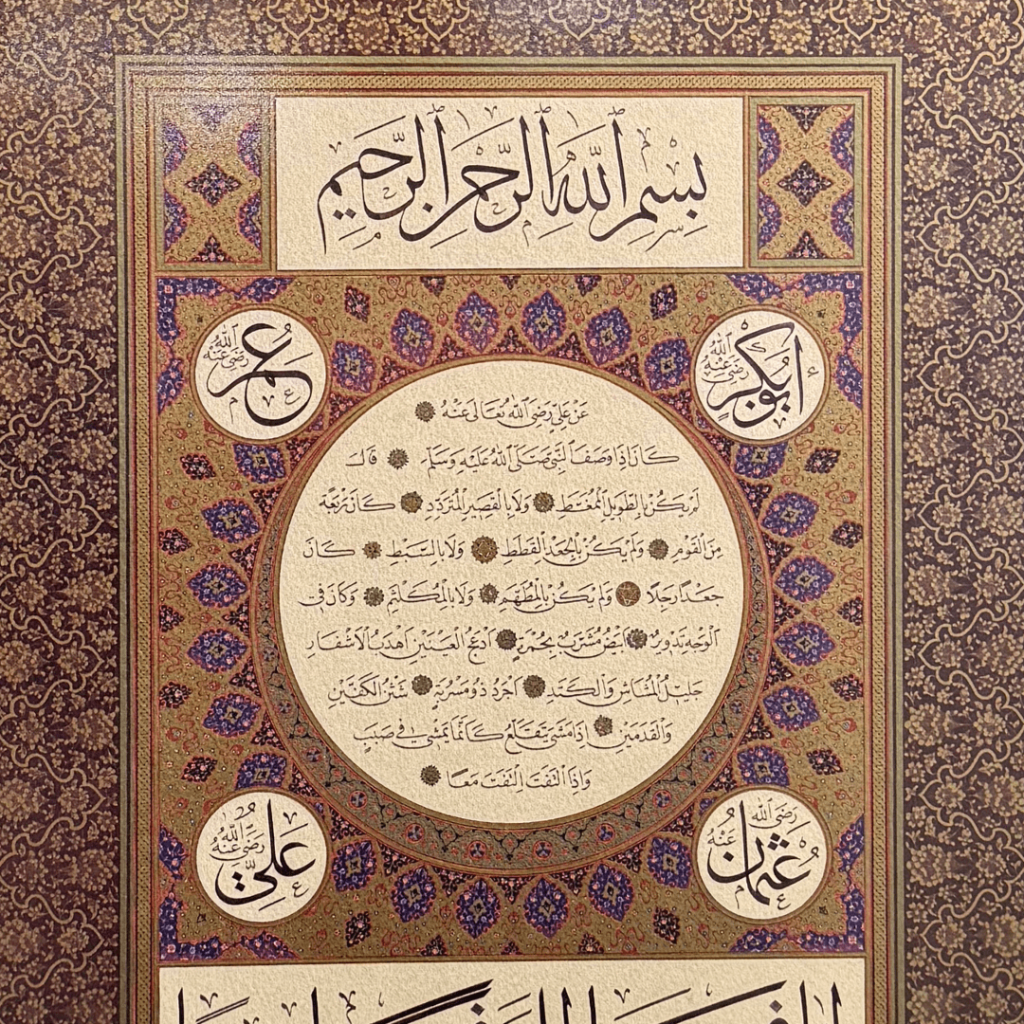 بِسْمِ ٱللَّهِ ٱلرَّحْمٰنِ ٱلرَّحِيمِ
أَبُو بَكْرٍ رَضِيَ ٱللَّهُ عَنْهُ
عُمَرُ رَضِيَ ٱللَّهُ عَنْهُ
عَنْ عَلِيٍّ رَضِيَ ٱللَّهُ تَعَالَى عَنْهُ
كَانَ إِذَا وَصَفَ ٱلنَّبِيَّ صَلَّى ٱللَّهُ عَلَيْهِ وَسَلَّمَ قَالَ
لَمْ يَكُنْ بِالطَّوِيلِ الْمُمَغَّطِ وَلَا بِالْقَصِيرِ الْمُتَرَدِّدِ كَانَ رَبْعَةً
مِنَ الْقَوْمِ وَلَمْ يَكُنْ بِالْجَعْدِ الْقَطَطِ وَلَا بِالسَّبْطِ كَانَ
جَعْدًا رَجِلًا وَلَمْ يَكُنْ بِالْمُطَهَّمِ وَلَا بِالْمُكَلْثَمِ وَكَانَ فِي
الْوَجْهِ تَدْوِيرٌ أَبْيَضُ مُشْرَبٌ بِحُمْرَةٍ أَدْعَجُ الْعَيْنَيْنِ أَهْدَبُ الْأَشْفَارِ
جَلِيلُ الْمُشَاشِ وَالْكَتَدِ أَجْرَدُ ذُو مَسْرُبَةٍ شَثْنُ الْكَفَّيْنِ
وَالْقَدَمَيْنِ إِذَا مَشَى يَتَقَلَّعُ كَأَنَّمَا يَمْشِي فِي صَبَبٍ
وَإِذَا الْتَفَتَ الْتَفَتَ مَعًا
عُثْمَانُ رَضِيَ ٱللَّهُ عَنْهُ
عَلِيٌّ رَضِيَ ٱللَّهُ عَنْهُ